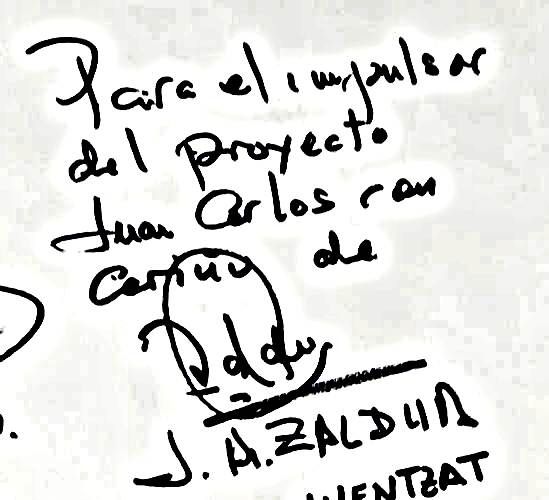 Para el impulsor
del proyecto
Juan Carlos con
Cariño de
J. A. ZALDUA